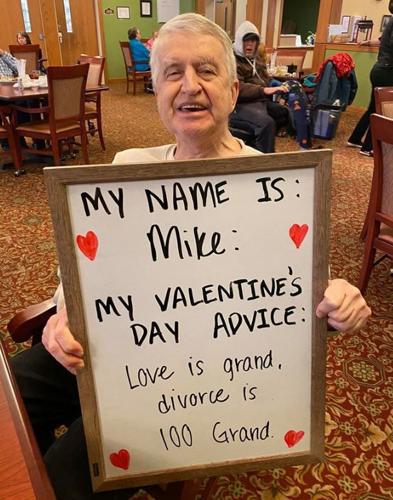 MY NAME IS:
Mike:
MY VALENTINE'S
DAY ADVICE:
Love is grand,
divorce is
100 Grand.